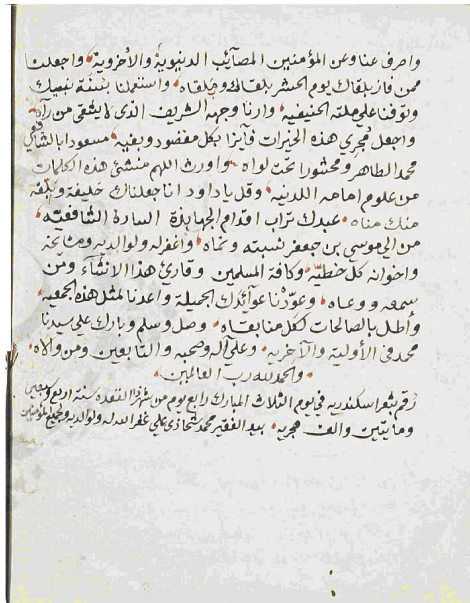 واصرف عنا وعن المؤمنين المصائب الدنيوية والأخروية واجعلنا
ممن فاز بلقاك يوم الحشر بلقاك وملقاه واستعملنا بسنة نبيك
وتوفنا على ملته الحنيفيه وارنا وجهه الشريف الذى لا يشقى من رآه
واجعل مجري هذه الخيرات فآيزا بكل مقصود وبغيه مسعودا بالشافعي
محمد الطاهر ومحشورا تحت لواه واورث اللهم منشئ هذه الكلمات
من علوم امامه اللدنيه وقل يا داود انا جعلناك خليفة وبلغه
منك مناه عبدك تراب اقدام الجهابذة السادة الشافعيه
من الى موسى بن جعفر نسبته ونماه واغفر له ولوالديه ومشايخه
واخوانه كل خطيه وكافة المسلمين وقارئ هذا الانشآء ومن
سمعه ووعاه وعودنا عوآئدك الجميلة واعدنا لمثل هذه الجمعيه
وأطل بالصالحات لكل منا بقاه وصل وسلم وبارك على سيدنا
محمد فى الأولية والآخريه وعلى آله وصحبه والتابعين ومن والاه
والحمد لله رب العالمين
رقم بثغر اسكندريه في يوم الثلاث المبارك رابع يوم من شهر القعده سنة اربع
ومايتين والف هجريه بيد الفقير محمد حجازي على غفر الله له ولوالديه ولجميع المؤمنين